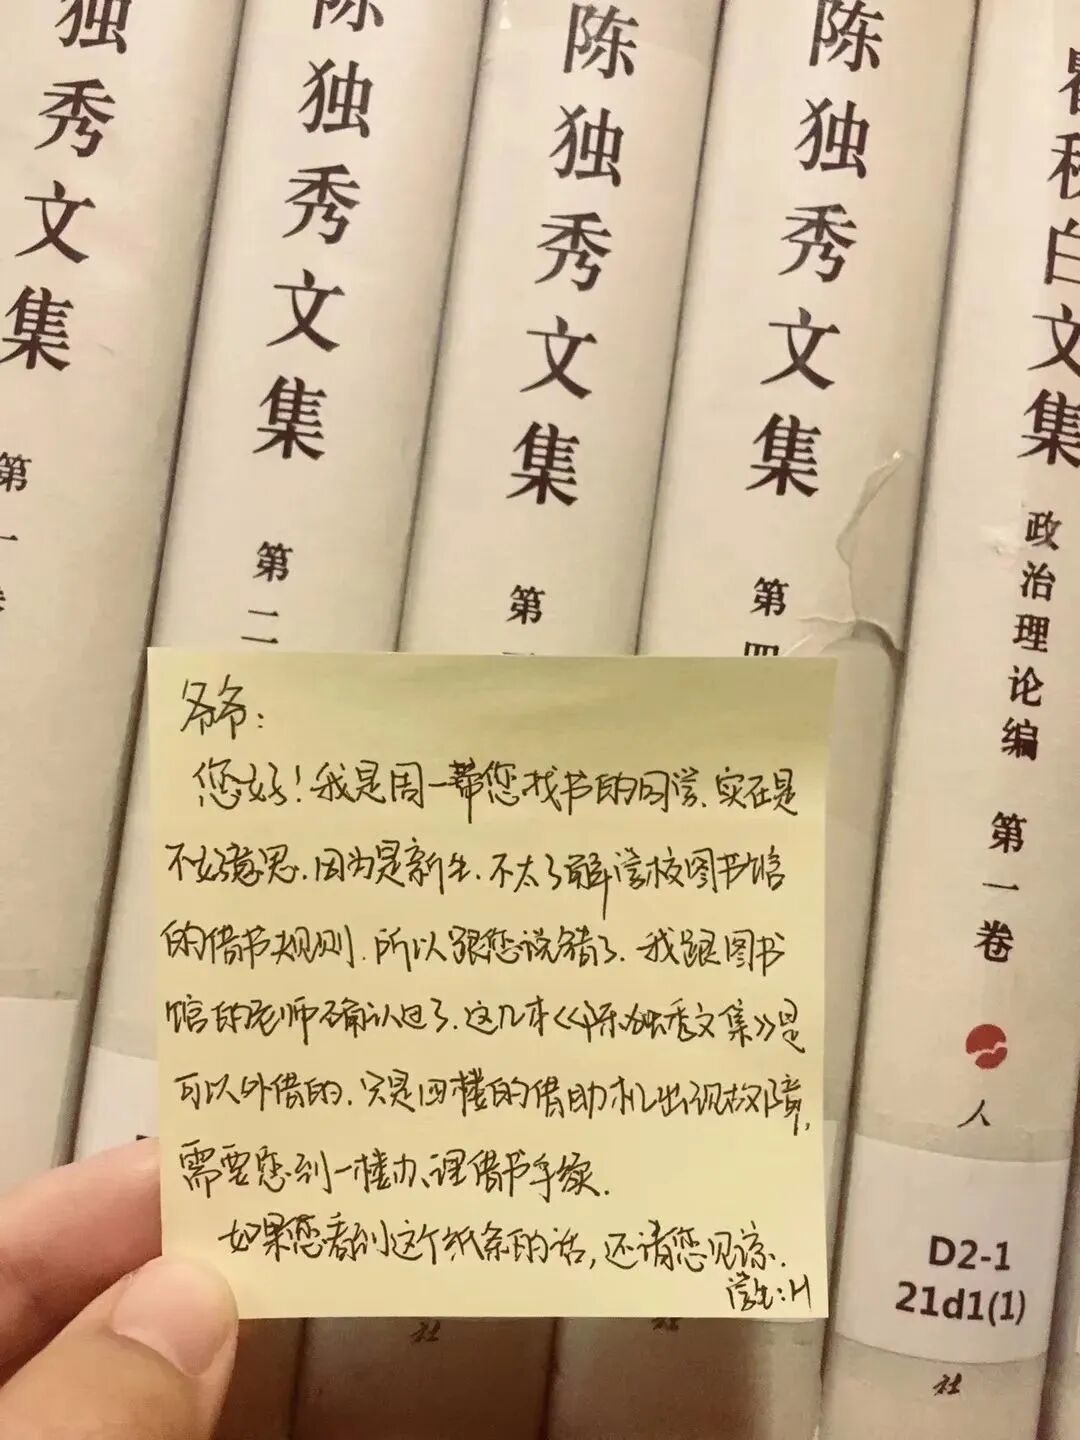 独秀文集
第一
陈独秀文集
第二
陈独秀文集
第
陈独秀文集
第四
瞿秋白文集
政治理论编
第一卷
人
D2-1
21d1(1)
社
社
爷爷：
您好！我是周一帮您找书的同学，实在是
不好意思，因为是新生，不太了解学校图书馆
的借书规则，所以跟您说错了，我跟图书
馆的老师确认过了，这几本《陈独秀文集》是
可以外借的，只是四楼的借助机出现故障，
需要您到一楼办理借书手续．
如果您看到这个纸条的话，还请您见谅．
学生：H